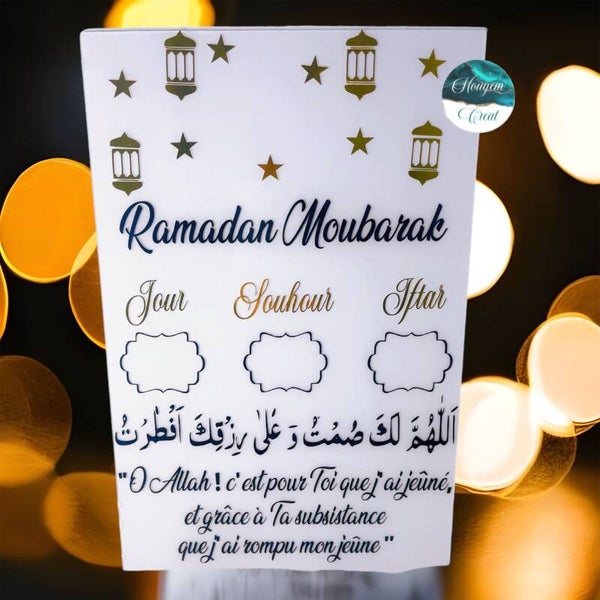 Houyem
Creat
Ramadan Moubarak
Jour Souhour Iftar
اَللّٰهُمَّ لَكَ صُمْتُ وَ عَلىٰ رِزْقِكَ اَفْطَرْتُ
"O Allah ! c'est pour Toi que j'ai jeûné,
et grâce à Ta subsistance
que j'ai rompu mon jeûne"